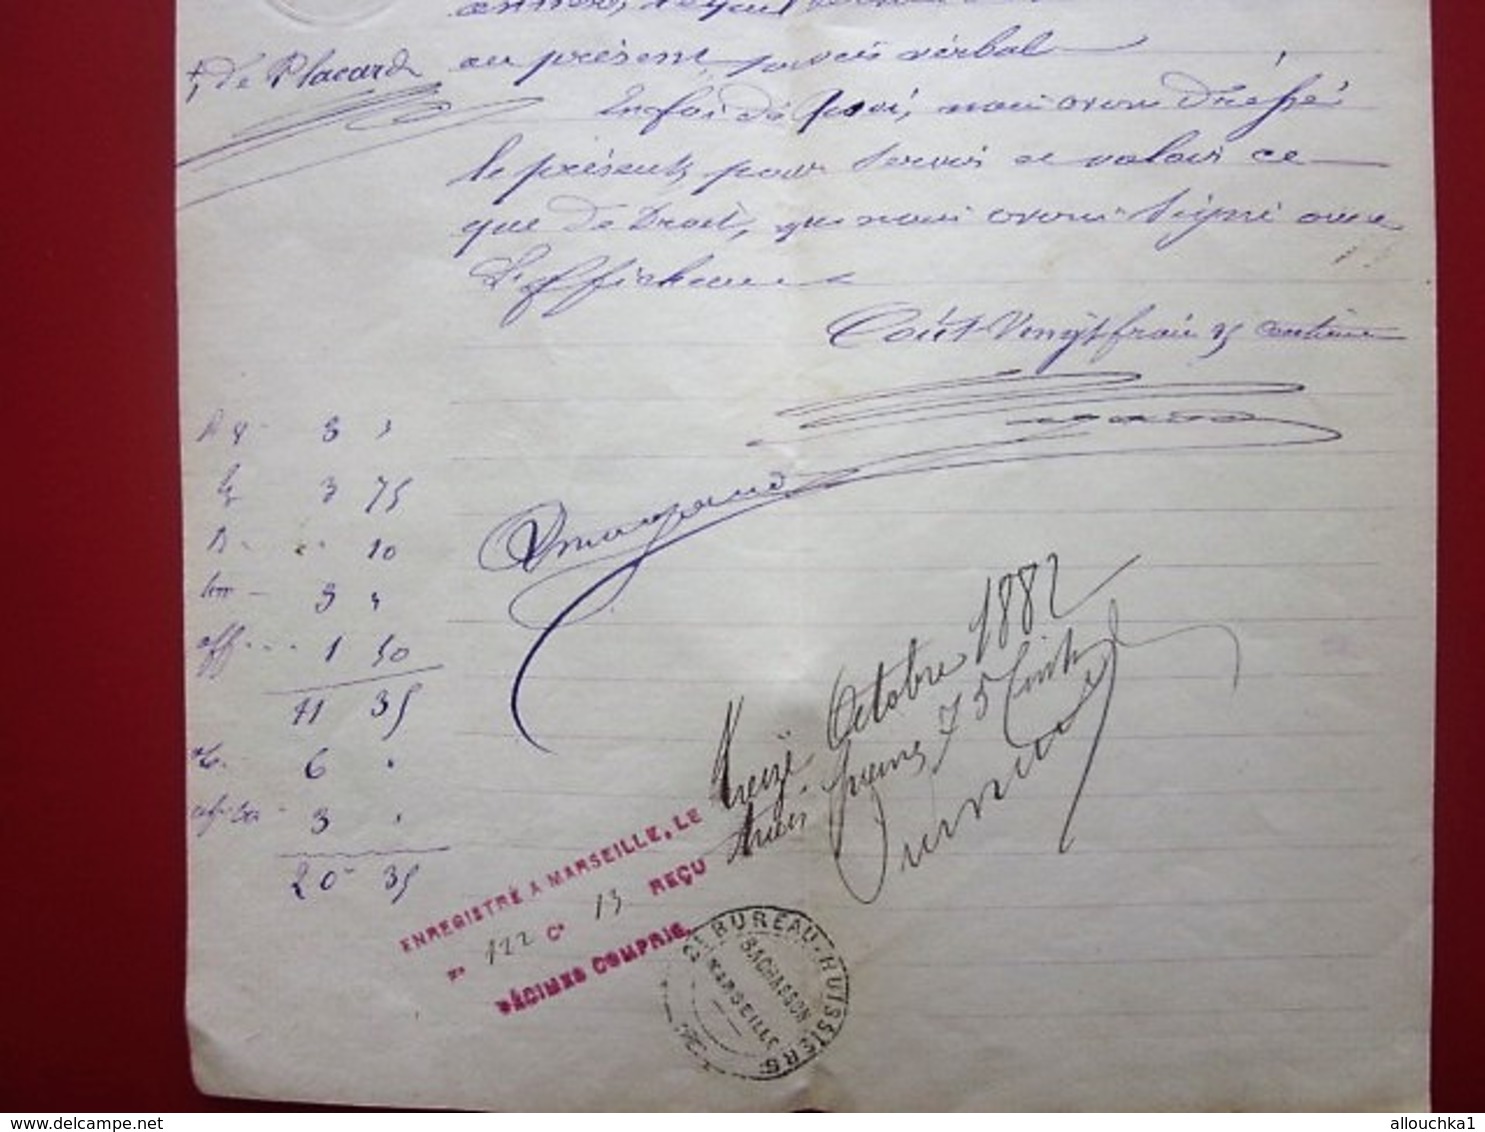 + de Placard
au présent procès verbal
En foi de quoi, nous avons dressé
le présent, pour servir et valoir ce
que de droit, que nous avons signé avec
L'afficheur
Coût Vingt francs 35 centimes
3 ,
3 75
10
3 ,
aff. 1 50
11 35
6 .
3 .
20 35
ENREGISTRÉ A MARSEILLE, LE Treize Octobre 1882
F° 122 C° 13 REÇU trois francs 75 Cent
DÉCIMES COMPRIS.
BUREAU-HUISSIERS
BACHASSON
MARSEILLE
www.delcampe.net
allouchka1